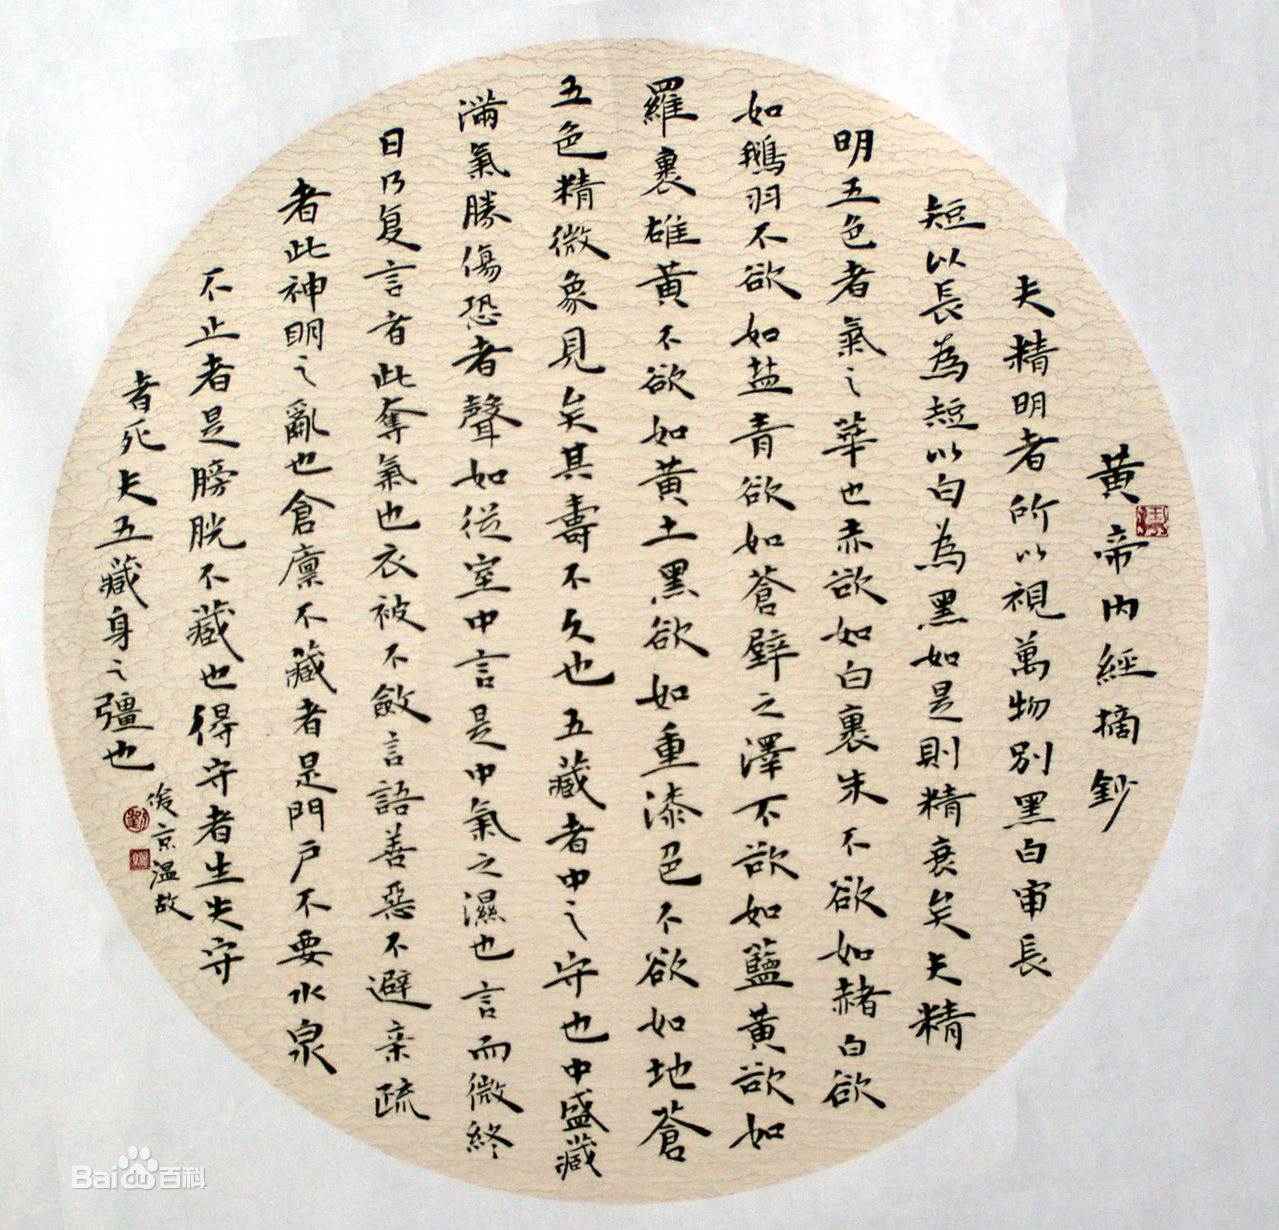 黃帝內經摘鈔
夫精明者所以視萬物別黑白審長
短以長為短以白為黑如是則精衰矣夫精
明五色者氣之華也赤欲如白裹朱不欲如赭白欲
如鵝羽不欲如盐青欲如蒼壁之澤不欲如籃黃欲如
羅裹雄黃不欲如黃土黑欲如重漆色不欲如地蒼
五色精微象見矣其壽不久也五藏者中之守也中盛藏
滿氣勝傷恐者聲如從室中言是中氣之濕也言而微終
日乃复言者此奪氣也衣被不斂言語善惡不避亲疏
者此神明之亂也倉廩不藏者是門戶不要水泉
不止者是膀胱不藏也得守者生失守
者死夫五藏身之彊也
俊京溫故
Baidu百科